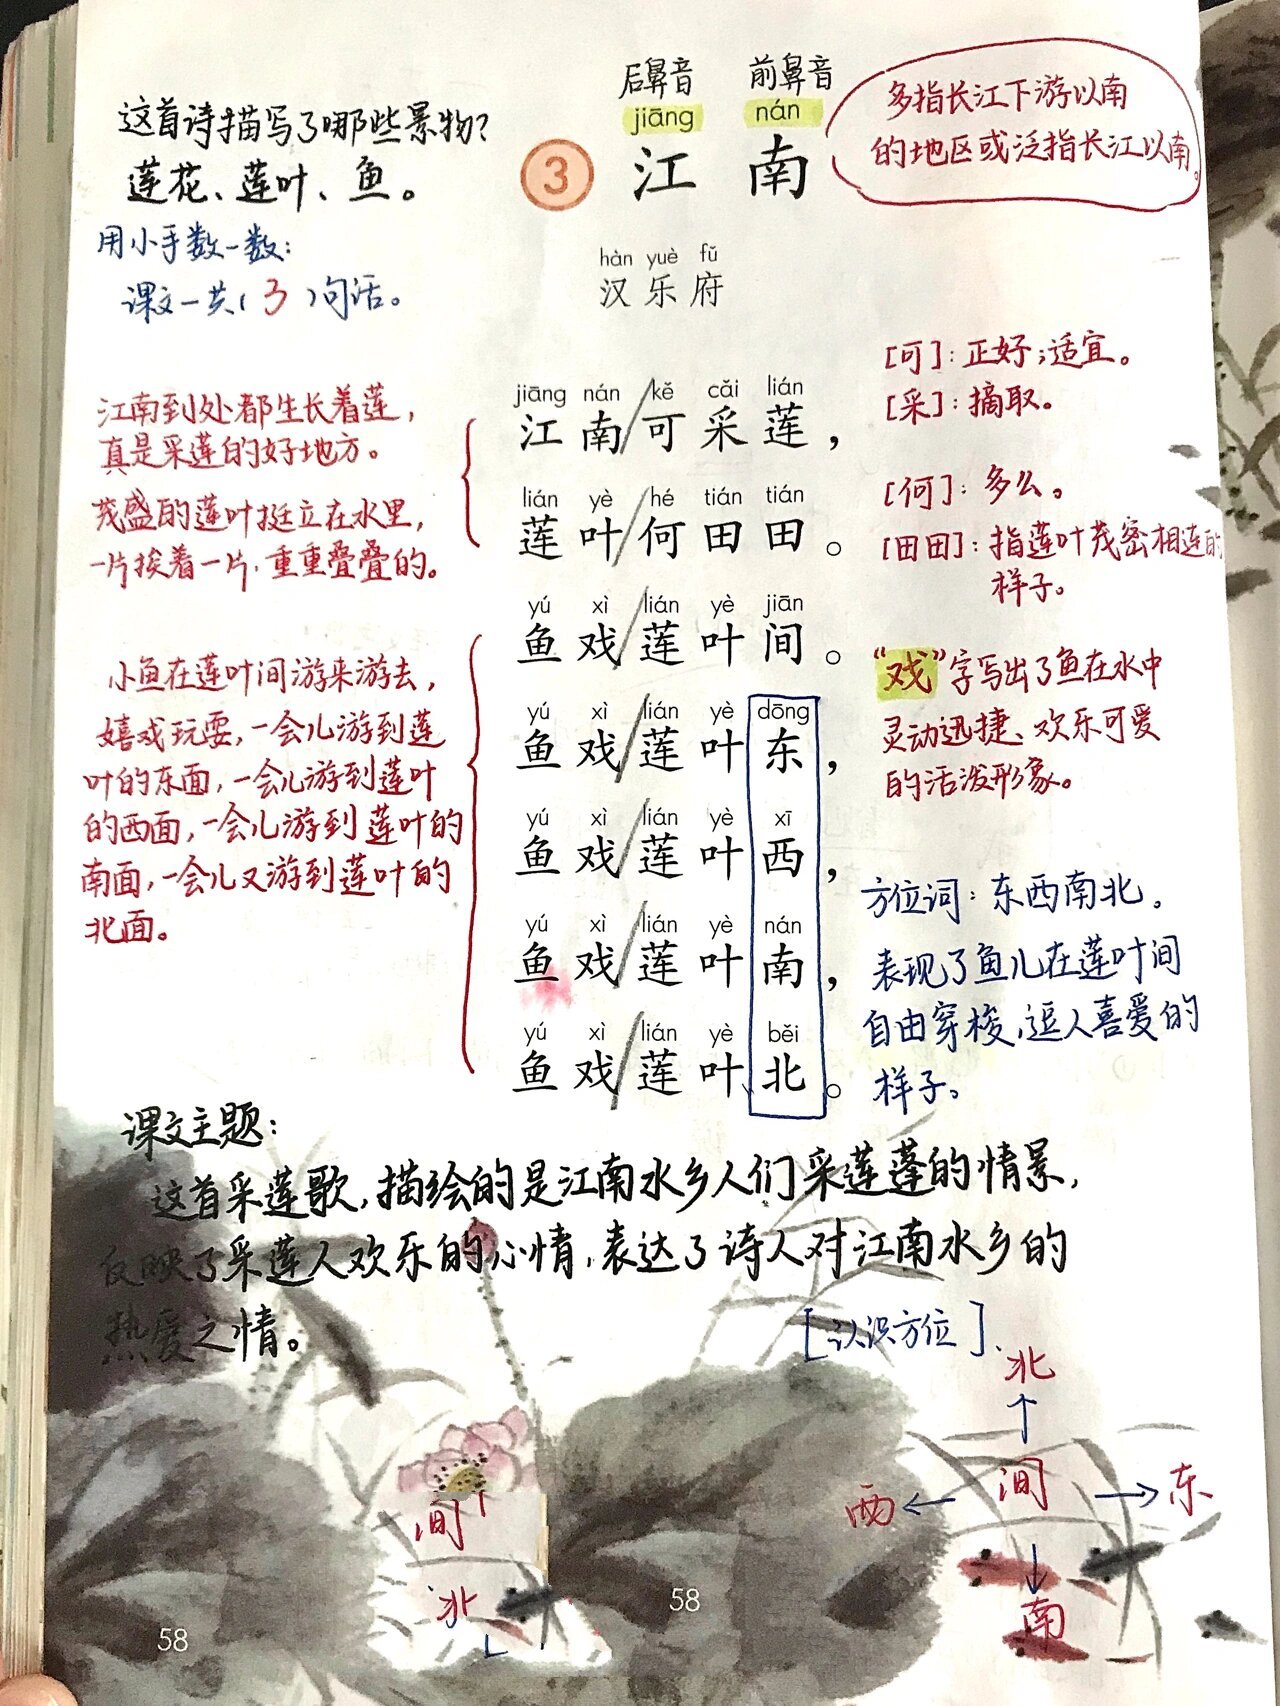 后鼻音 前鼻音
jiāng nán
③ 江南
多指长江下游以南
的地区或泛指长江以南。
这首诗描写了哪些景物?
莲花、莲叶、鱼。
用小手数一数:
课文一共(3)句话。
hàn yuè fǔ
汉乐府
[可]:正好;适宜。
[采]:摘取。
[何]:多么。
[田田]:指莲叶茂密相连的
样子。
江南到处都生长着莲,
真是采莲的好地方。
茂盛的莲叶挺立在水里,
一片挨着一片,重重叠叠的。
jiāng nán kě cǎi lián
江南/可采莲,
lián yè hé tián tián
莲叶/何田田。
yú xì lián yè jiān
鱼戏/莲叶间。
yú xì lián yè dōng
鱼戏/莲叶东,
yú xì lián yè xī
鱼戏/莲叶西,
yú xì lián yè nán
鱼戏/莲叶南,
yú xì lián yè běi
鱼戏/莲叶北。
小鱼在莲叶间游来游去,
嬉戏玩耍,一会儿游到莲
叶的东面,一会儿游到莲叶
的西面,一会儿游到莲叶的
南面,一会儿又游到莲叶的
北面。
“戏”字写出了鱼在水中
灵动迅捷、欢乐可爱
的活泼形象。
方位词:东西南北。
表现了鱼儿在莲叶间
自由穿梭,逗人喜爱的
样子。
课文主题:
这首采莲歌,描绘的是江南水乡人们采莲蓬的情景,
反映了采莲人欢乐的心情,表达了诗人对江南水乡的
热爱之情。
[认识方位].
北
西 ← 间 → 东
南
间
北
58
58